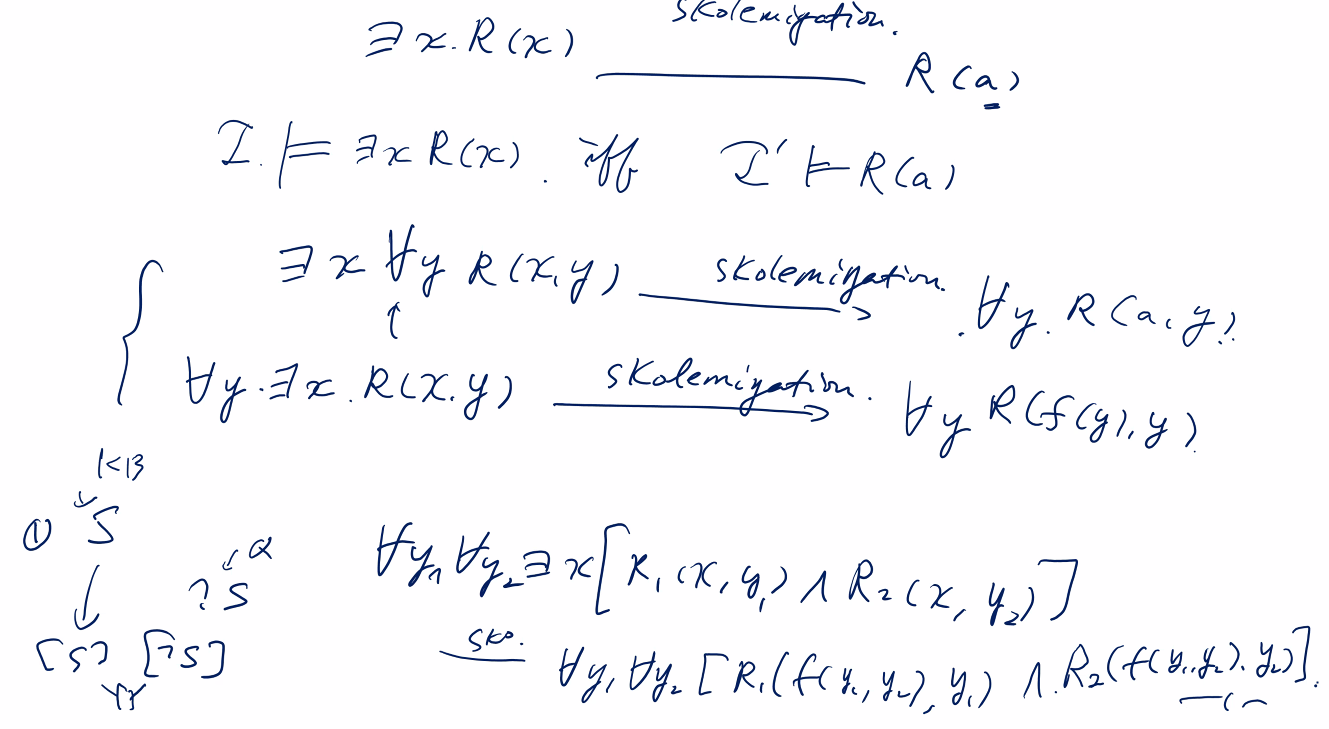 skolemization.
∃x. R(x) R(a)
I. ⊨ ∃x R(x). iff I' ⊢ R(a)
∃x ∀y R(x,y) skolemization. ∀y. R(a, y).
∀y. ∃x. R(x.y) skolemization. ∀y R(f(y), y)
KB
① S
? S Q
[S] [¬S]
∀y₁ ∀y₂ ∃x [R₁(x, y₁) ∧ R₂(x, y₂)]
sko. ∀y₁ ∀y₂ [R₁(f(y₁, y₂), y₁) ∧ R₂(f(y₁, y₂), y₂)].